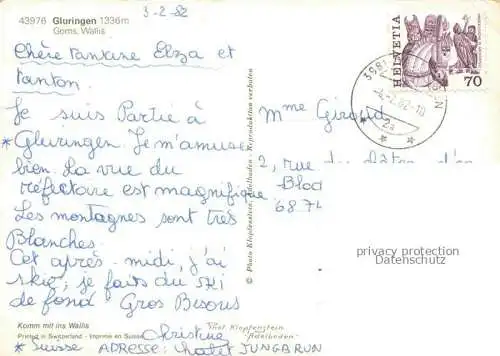 43976 Gluringen 1336m
Goms, Wallis
3-2-82
Chère tantine Elza et
tonton.
Je suis Partie à
*Gluringen. Je m'amuse
bien. La vue du
réfectoire est magnifique
Les montagnes sont très
Blanches.
Cet après-midi, j'ai
skié; je fais du ski
de fond Gros Bisous
Christine
Komm mit ins Wallis
Printed in Switzerland - Imprimé en Suisse
* Suisse ADRESSE: chalet JUNGBRUN
© Photo Klopfenstein, Adelboden - Reproduktion verboten
Phot. Klopfenstein
Adelboden
HELVETIA
70
2a
Mme Giraud
2, rue du
6871
privacy protection
Datenschutz